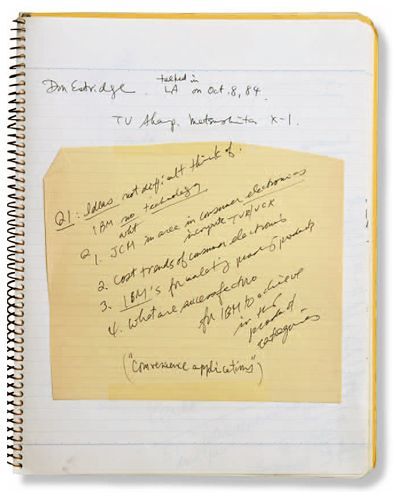 Don Estridge talked in
LA on Oct. 8, 84.
TV Sharp, Matsushita X-1.
Q1: Ideas not difficult think of.
IBM no technology
what
Q 1. JCM in area in consumer electronics
incorporate TV/VCR
2. Cost trends of consumer electronics
3. IBM's for marketing products
4. What are success factors
for IBM to achieve
in the
products of
categories
("Convenience applications")